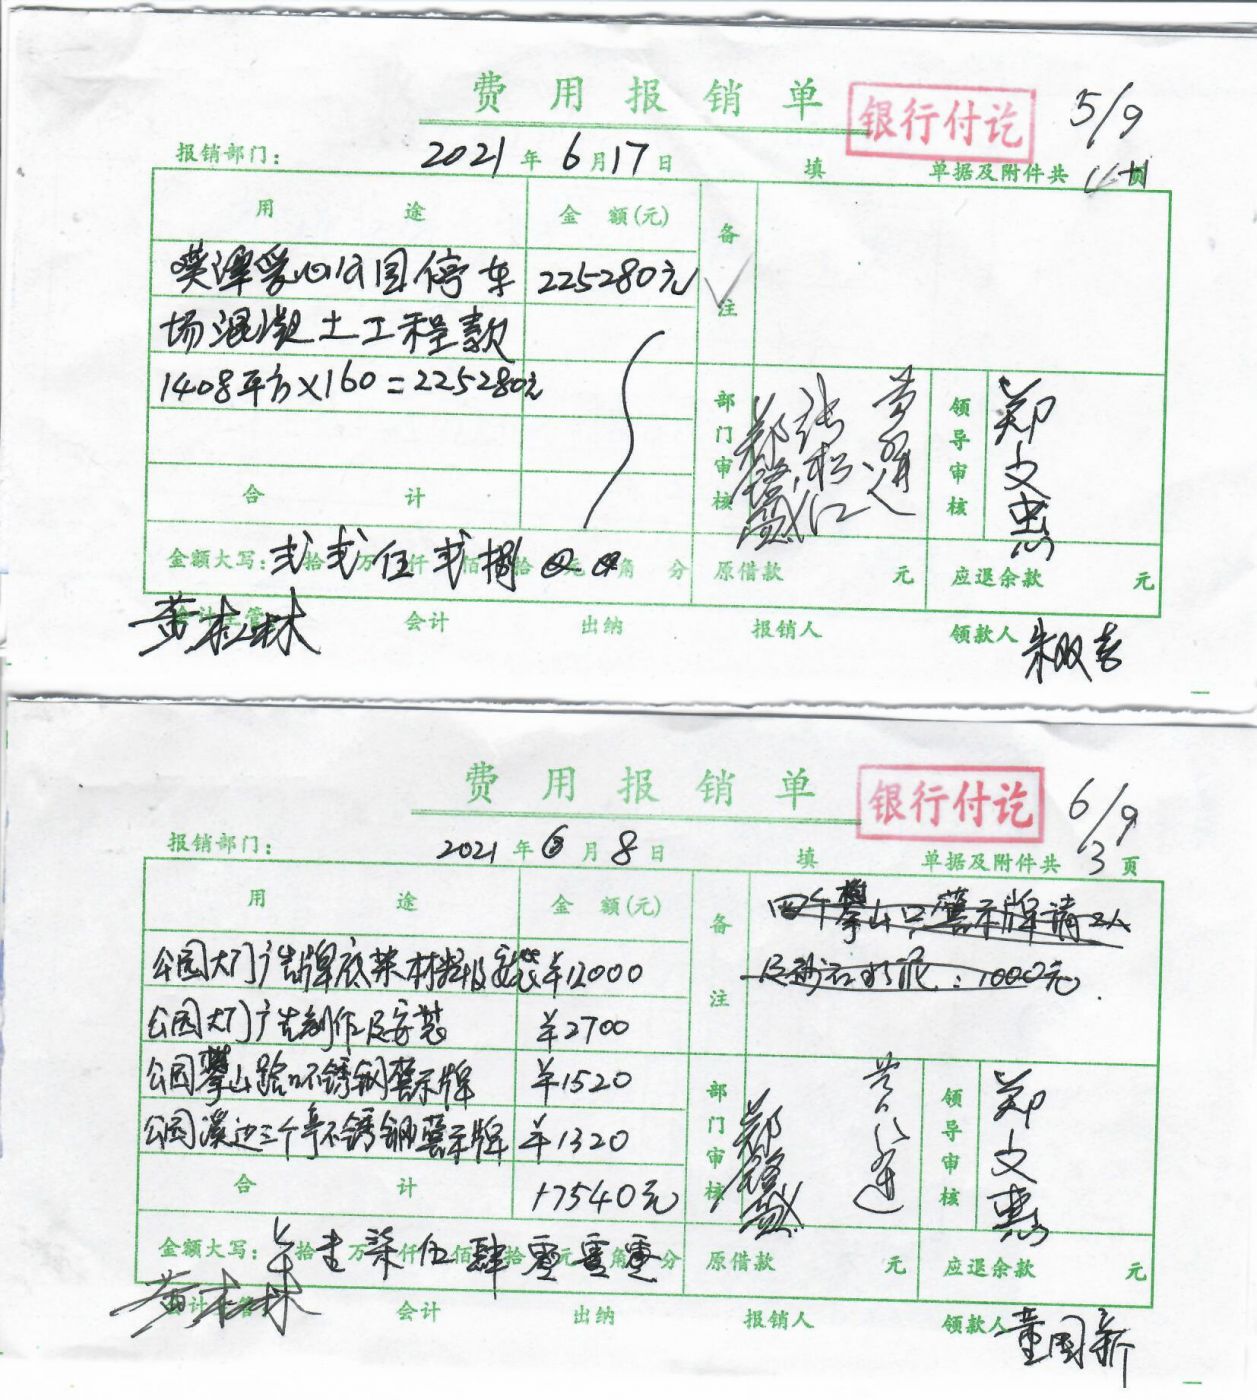 费用报销单
银行付讫
5/9
报销部门：
2021年6月17日
填
单据及附件共 页
用途
金额(元)
备注
爱心公园停车 225280元
场混凝土工程款
1408平方×160=225280元
部门审核
领导审核
郑文惠
合计
金额大写：弍拾弍万伍仟弍佰捌拾元角分
原借款 元
应退余款 元
黄松林
会计主管
会计
出纳
报销人
领款人
朱双喜
费用报销单
银行付讫
6/9
报销部门：
2021年6月8日
填
单据及附件共3页
用途
金额(元)
备注
四个攀山口警示牌请工人
及砂石水泥：1000元
公园大门广告牌底架材料及安装 ¥12000
公园大门广告制作及安装 ¥2700
公园攀山路口不锈钢警示牌 ¥1520
公园溪边三个亭不锈钢警示牌 ¥1320
部门审核
领导审核
郑文惠
合计 17540元
金额大写：拾壹万柒仟伍佰肆拾零元零角零分
原借款 元
应退余款 元
黄松林
会计主管
会计
出纳
报销人
领款人
童国新